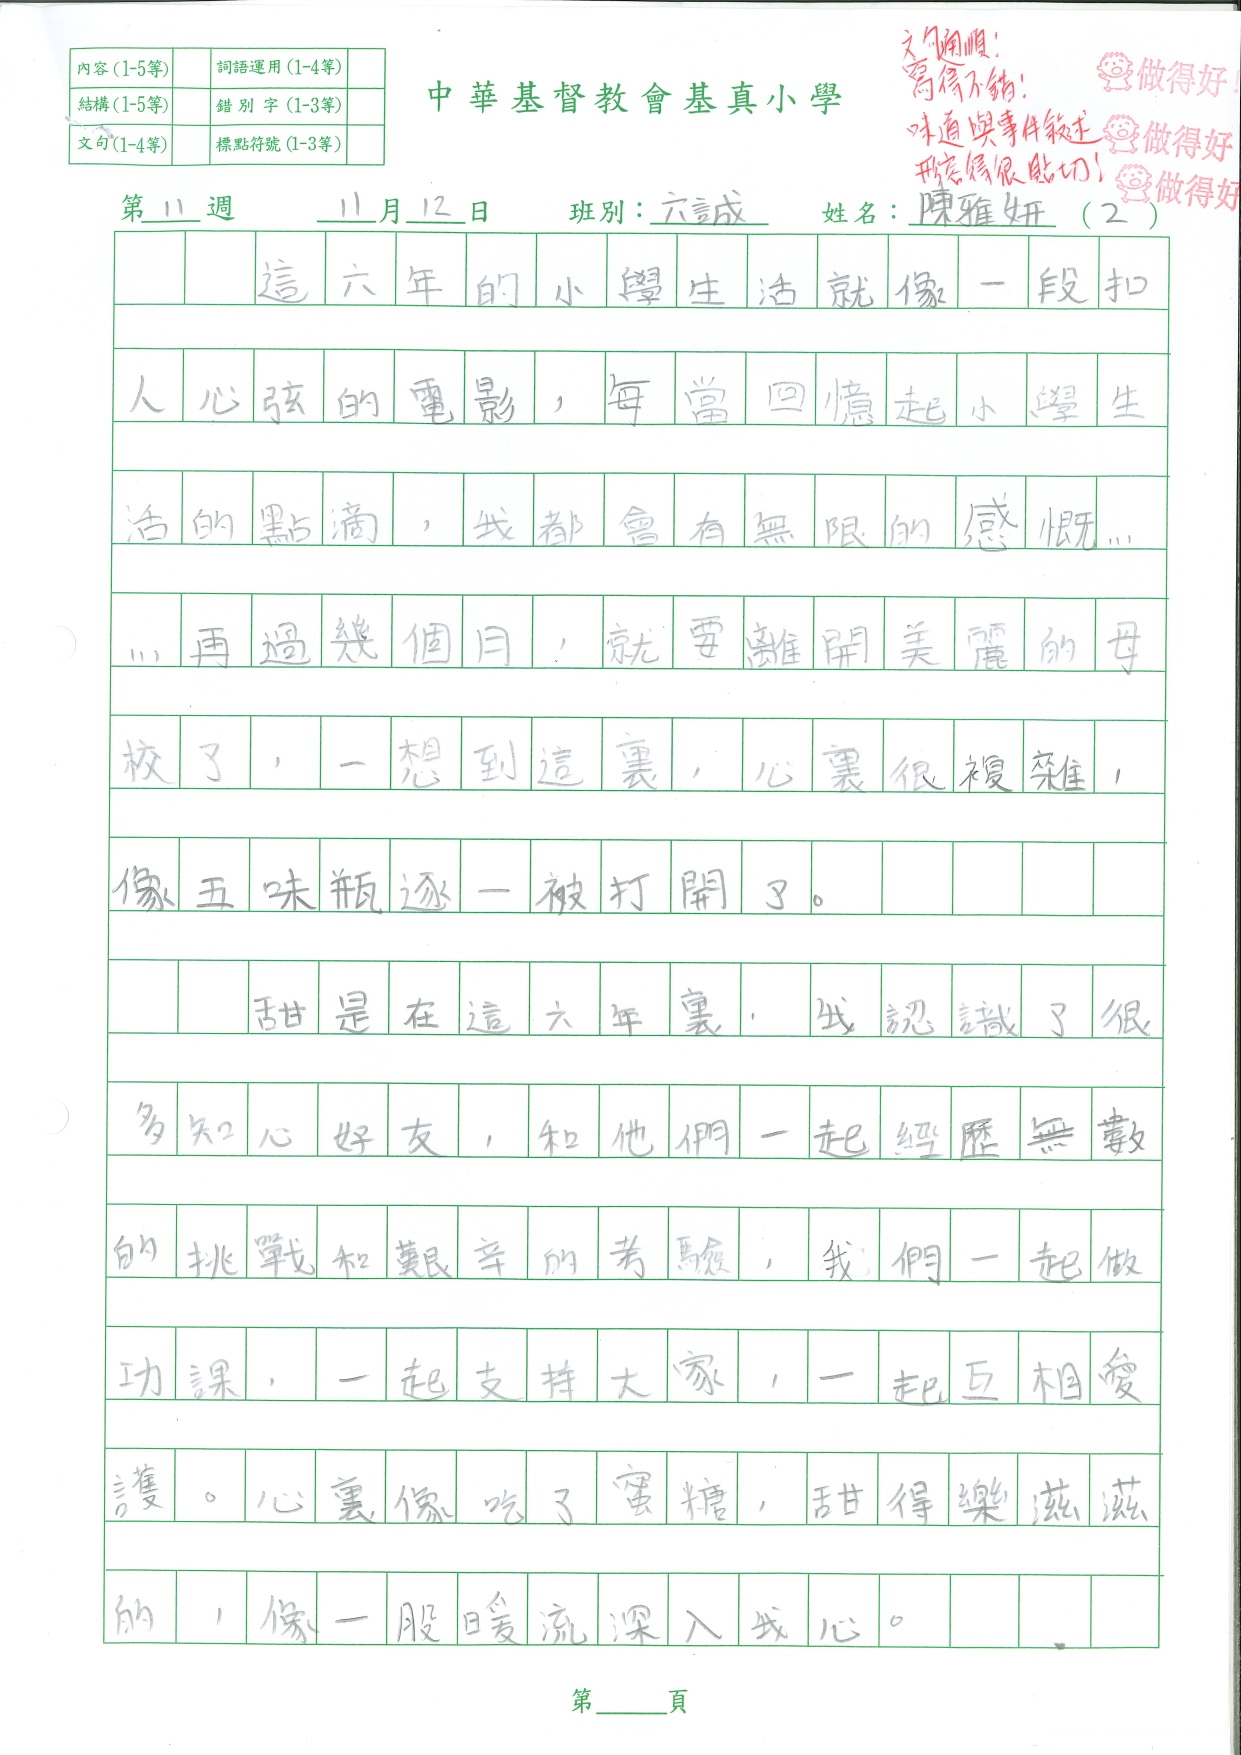 內容(1-5等) 詞語運用(1-4等)
結構(1-5等) 錯別字(1-3等)
文句(1-4等) 標點符號(1-3等)
中華基督教會基真小學
文句通順！
寫得不錯！
味道與事件敘述
形容得很貼切！
做得好！
做得好
做得好
第11週 11月12日 班別：六誠 姓名：陳雅妍（2）
這六年的小學生活就像一段扣
人心弦的電影，每當回憶起小學生
活的點滴，我都會有無限的感慨…
…再過幾個月，就要離開美麗的母
校了，一想到這裏，心裏很複雜，
像五味瓶逐一被打開了。
甜是在這六年裏，我認識了很
多知心好友，和他們一起經歷無數
的挑戰和艱辛的考驗，我們一起做
功課，一起支持大家，一起互相愛
護。心裏像吃了蜜糖，甜得樂滋滋
的，像一股暖流深入我心。
第 頁